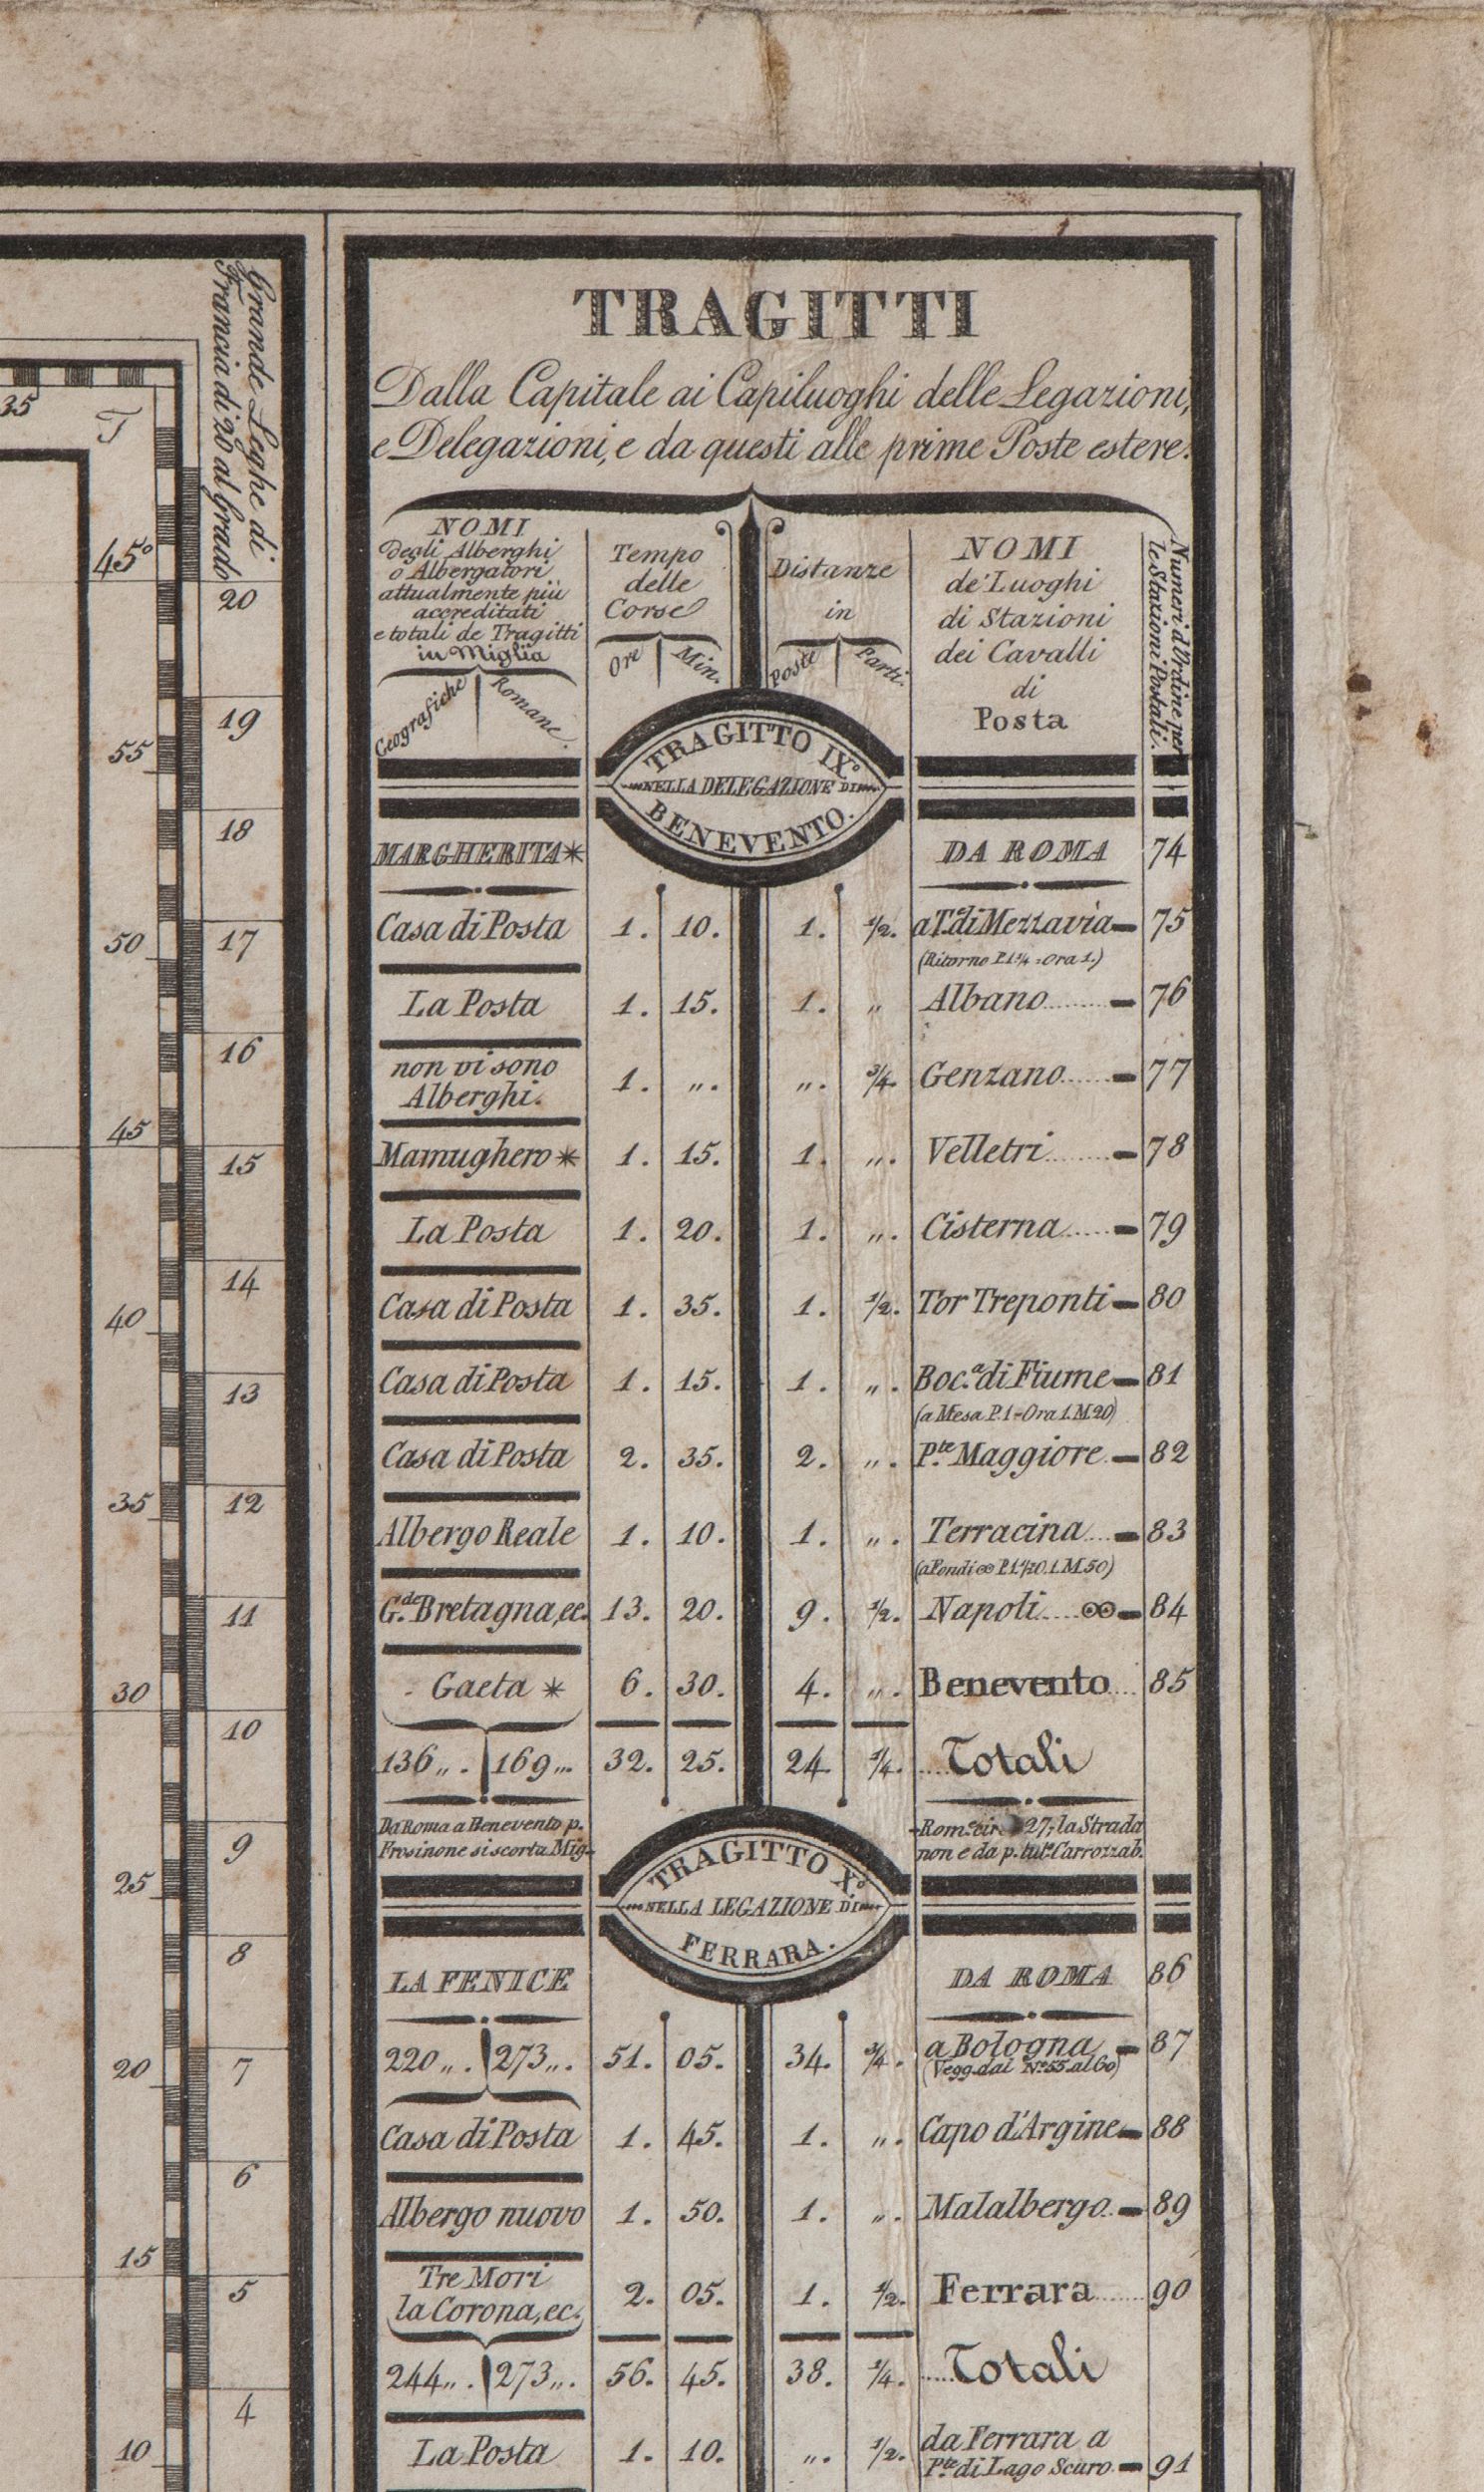 Grande Leghe di
Francia di 20 al Grado
35
T
45°
55
50
45
40
35
30
25
20
15
10
20
19
18
17
16
15
14
13
12
11
10
9
8
7
6
5
4
TRAGITTI
Dalla Capitale ai Capiluoghi delle Legazioni,
e Delegazioni, e da questi alle prime Poste estere.
NOMI
degli Alberghi
o Albergatori
attualmente più
accreditati
e totali de Tragitti
in Miglia
Geografiche Romane.
Tempo
delle
Corse
Ore Min.
Distanze
in
Poste Parti.
NOMI
de' Luoghi
di Stazioni
dei Cavalli
di
Posta
Numeri d'Ordine per
le Stazioni Postali.
TRAGITTO IX°
NELLA DELEGAZIONE DI
BENEVENTO.
MARGHERITA* DA ROMA 74
Casa di Posta 1. 10. 1. 1/2. a T.di Mezzavia 75
(Ritorno P.1 1/4 = Ora 1.)
La Posta 1. 15. 1. „ Albano 76
non vi sono
Alberghi. 1. „. „. 3/4. Genzano 77
Mamughero* 1. 15. 1. „. Velletri 78
La Posta 1. 20. 1. „. Cisterna 79
Casa di Posta 1. 35. 1. 1/2. Tor Treponti 80
Casa di Posta 1. 15. 1. „. Boc.a di Fiume 81
(a Mesa P.1=Ora 1.M.20)
Casa di Posta 2. 35. 2. „. P.te Maggiore 82
Albergo Reale 1. 10. 1. „. Terracina 83
(a Fondi ∞ P.1 1/2 O.1.M.50)
G.de Bretagna, ec. 13. 20. 9. 1/2. Napoli ∞ 84
Gaeta * 6. 30. 4. „. Benevento 85
136„. 169„. 32. 25. 24 1/4. Totali
Da Roma a Benevento p.
Frosinone si scorta Mig.
Rom.e cir. 27, la Strada
non e da p. tut.o Carrozzab.
TRAGITTO X°
NELLA LEGAZIONE DI
FERRARA.
LA FENICE DA ROMA 86
220„. 273„. 51. 05. 34. 3/4. a Bologna 87
(Vegg. dal N°55. al 60)
Casa di Posta 1. 45. 1. „. Capo d'Argine 88
Albergo nuovo 1. 50. 1. „. Malalbergo 89
Tre Mori
la Corona, ec. 2. 05. 1. 1/2. Ferrara 90
244„. 273„. 56. 45. 38. 1/4. Totali
La Posta 1. 10. „. 1/2. da Ferrara a
P.te di Lago Scuro 91